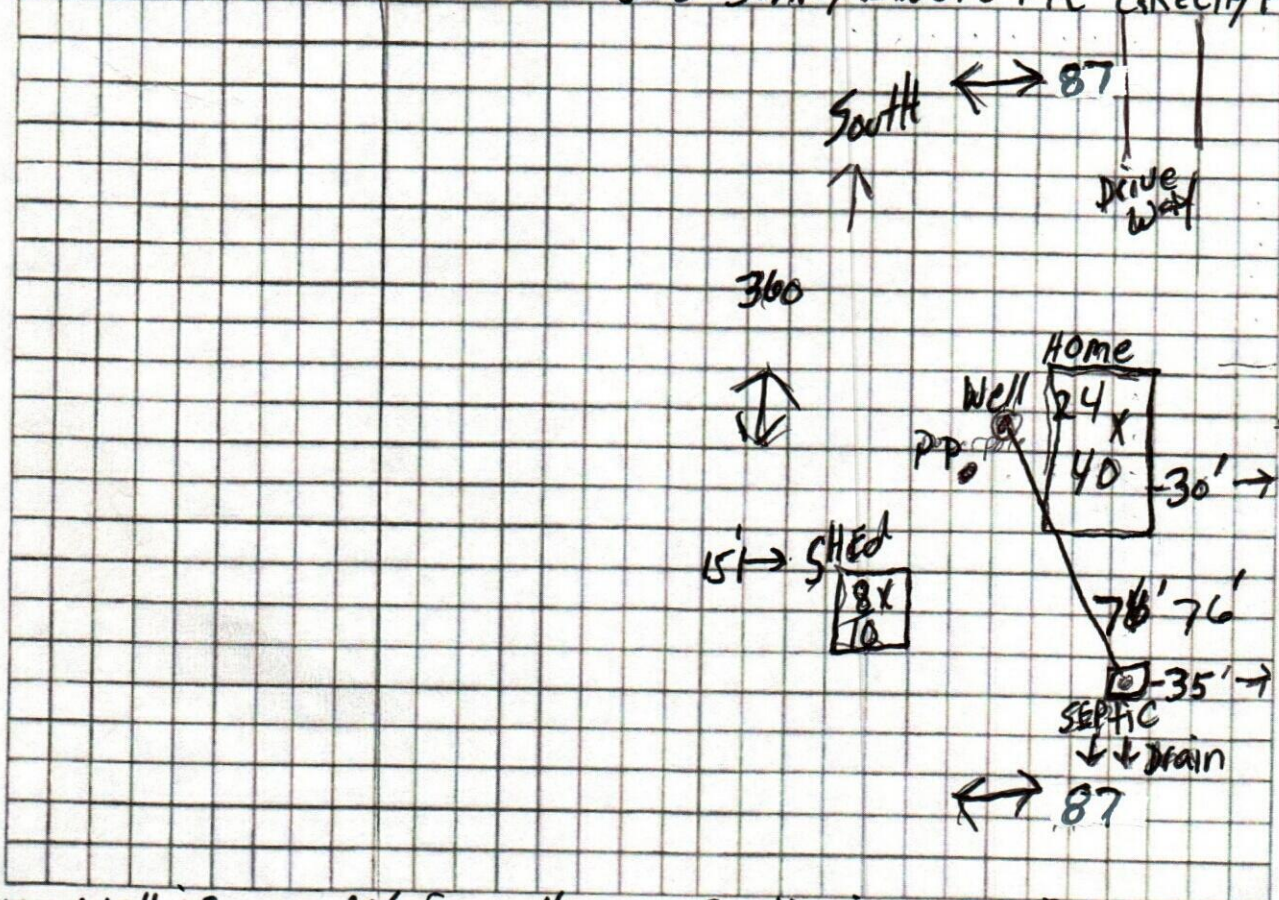 South
87
Drive
Way
360
Home
24
x
40
Well
P.P.
-30'
15'
SHEd
8x
10
76' 76'
-35'
SEPtiC
Drain
87